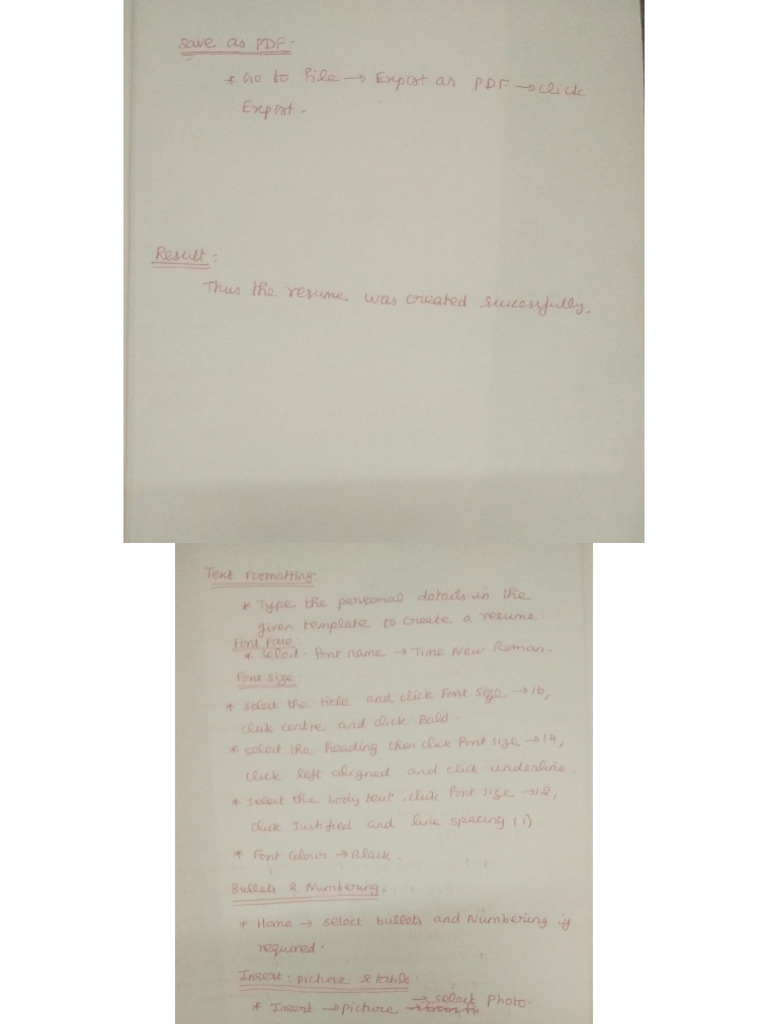 Save as PDF:-
* Go to File → Export as PDF → click
Export.
Result:
Thus the resume was created sucessfully.
Text Formatting:
* Type the personal details in the
given template to create a resume.
Font Face:
* Select Font name → Time New Roman.
Font size:
* select the title and click Font size → 16,
click centre and click Bold.
* select the heading then click Font size → 14,
click left aligned and click underline.
* select the body text, click Font size → 12,
click Justified and line spacing (1)
* Font Colour → Black.
Bullets & Numbering:
* Home → select bullets and Numbering if
required.
Insert: picture & table
* Insert → picture → select Photo.